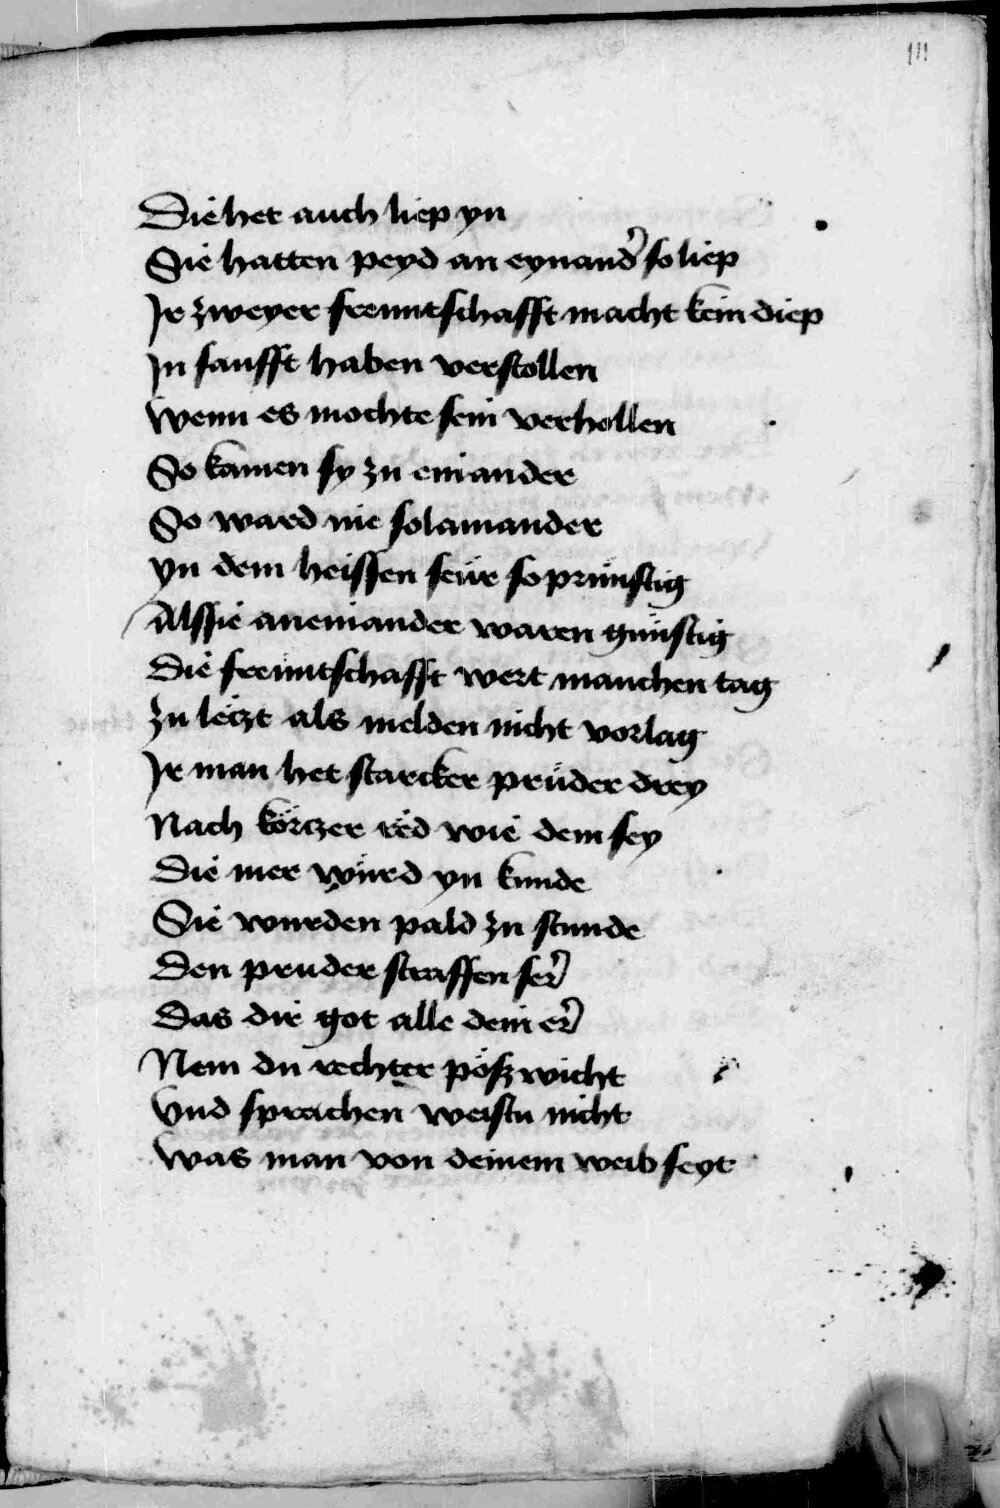 111
Die het auch liep yn
Sie hatten peyd an eynand' so liep
Jr zweyer freuntschafft macht kein diep
Jn sanfft haben verstollen
Wenn es mochte sein verhollen
So kamen sy zu einander
So ward nie solamander
yn dem heissen feür so prünstig
Als sie aneinander waren günstig
Die freüntschafft wert manchen tag
Zu letzt als melden nicht vorlag
Jr man het starcker prüder drey
Nach körtzer red wie dem sey
Die mer würd yn kunde
Sie wurden pald zu stunde
Den pruder straffen ser'
Das dir got alle dein er'
Nem du rechter pößwicht
Vnd sprachen weistu nicht
Was man von deinem weib seyt